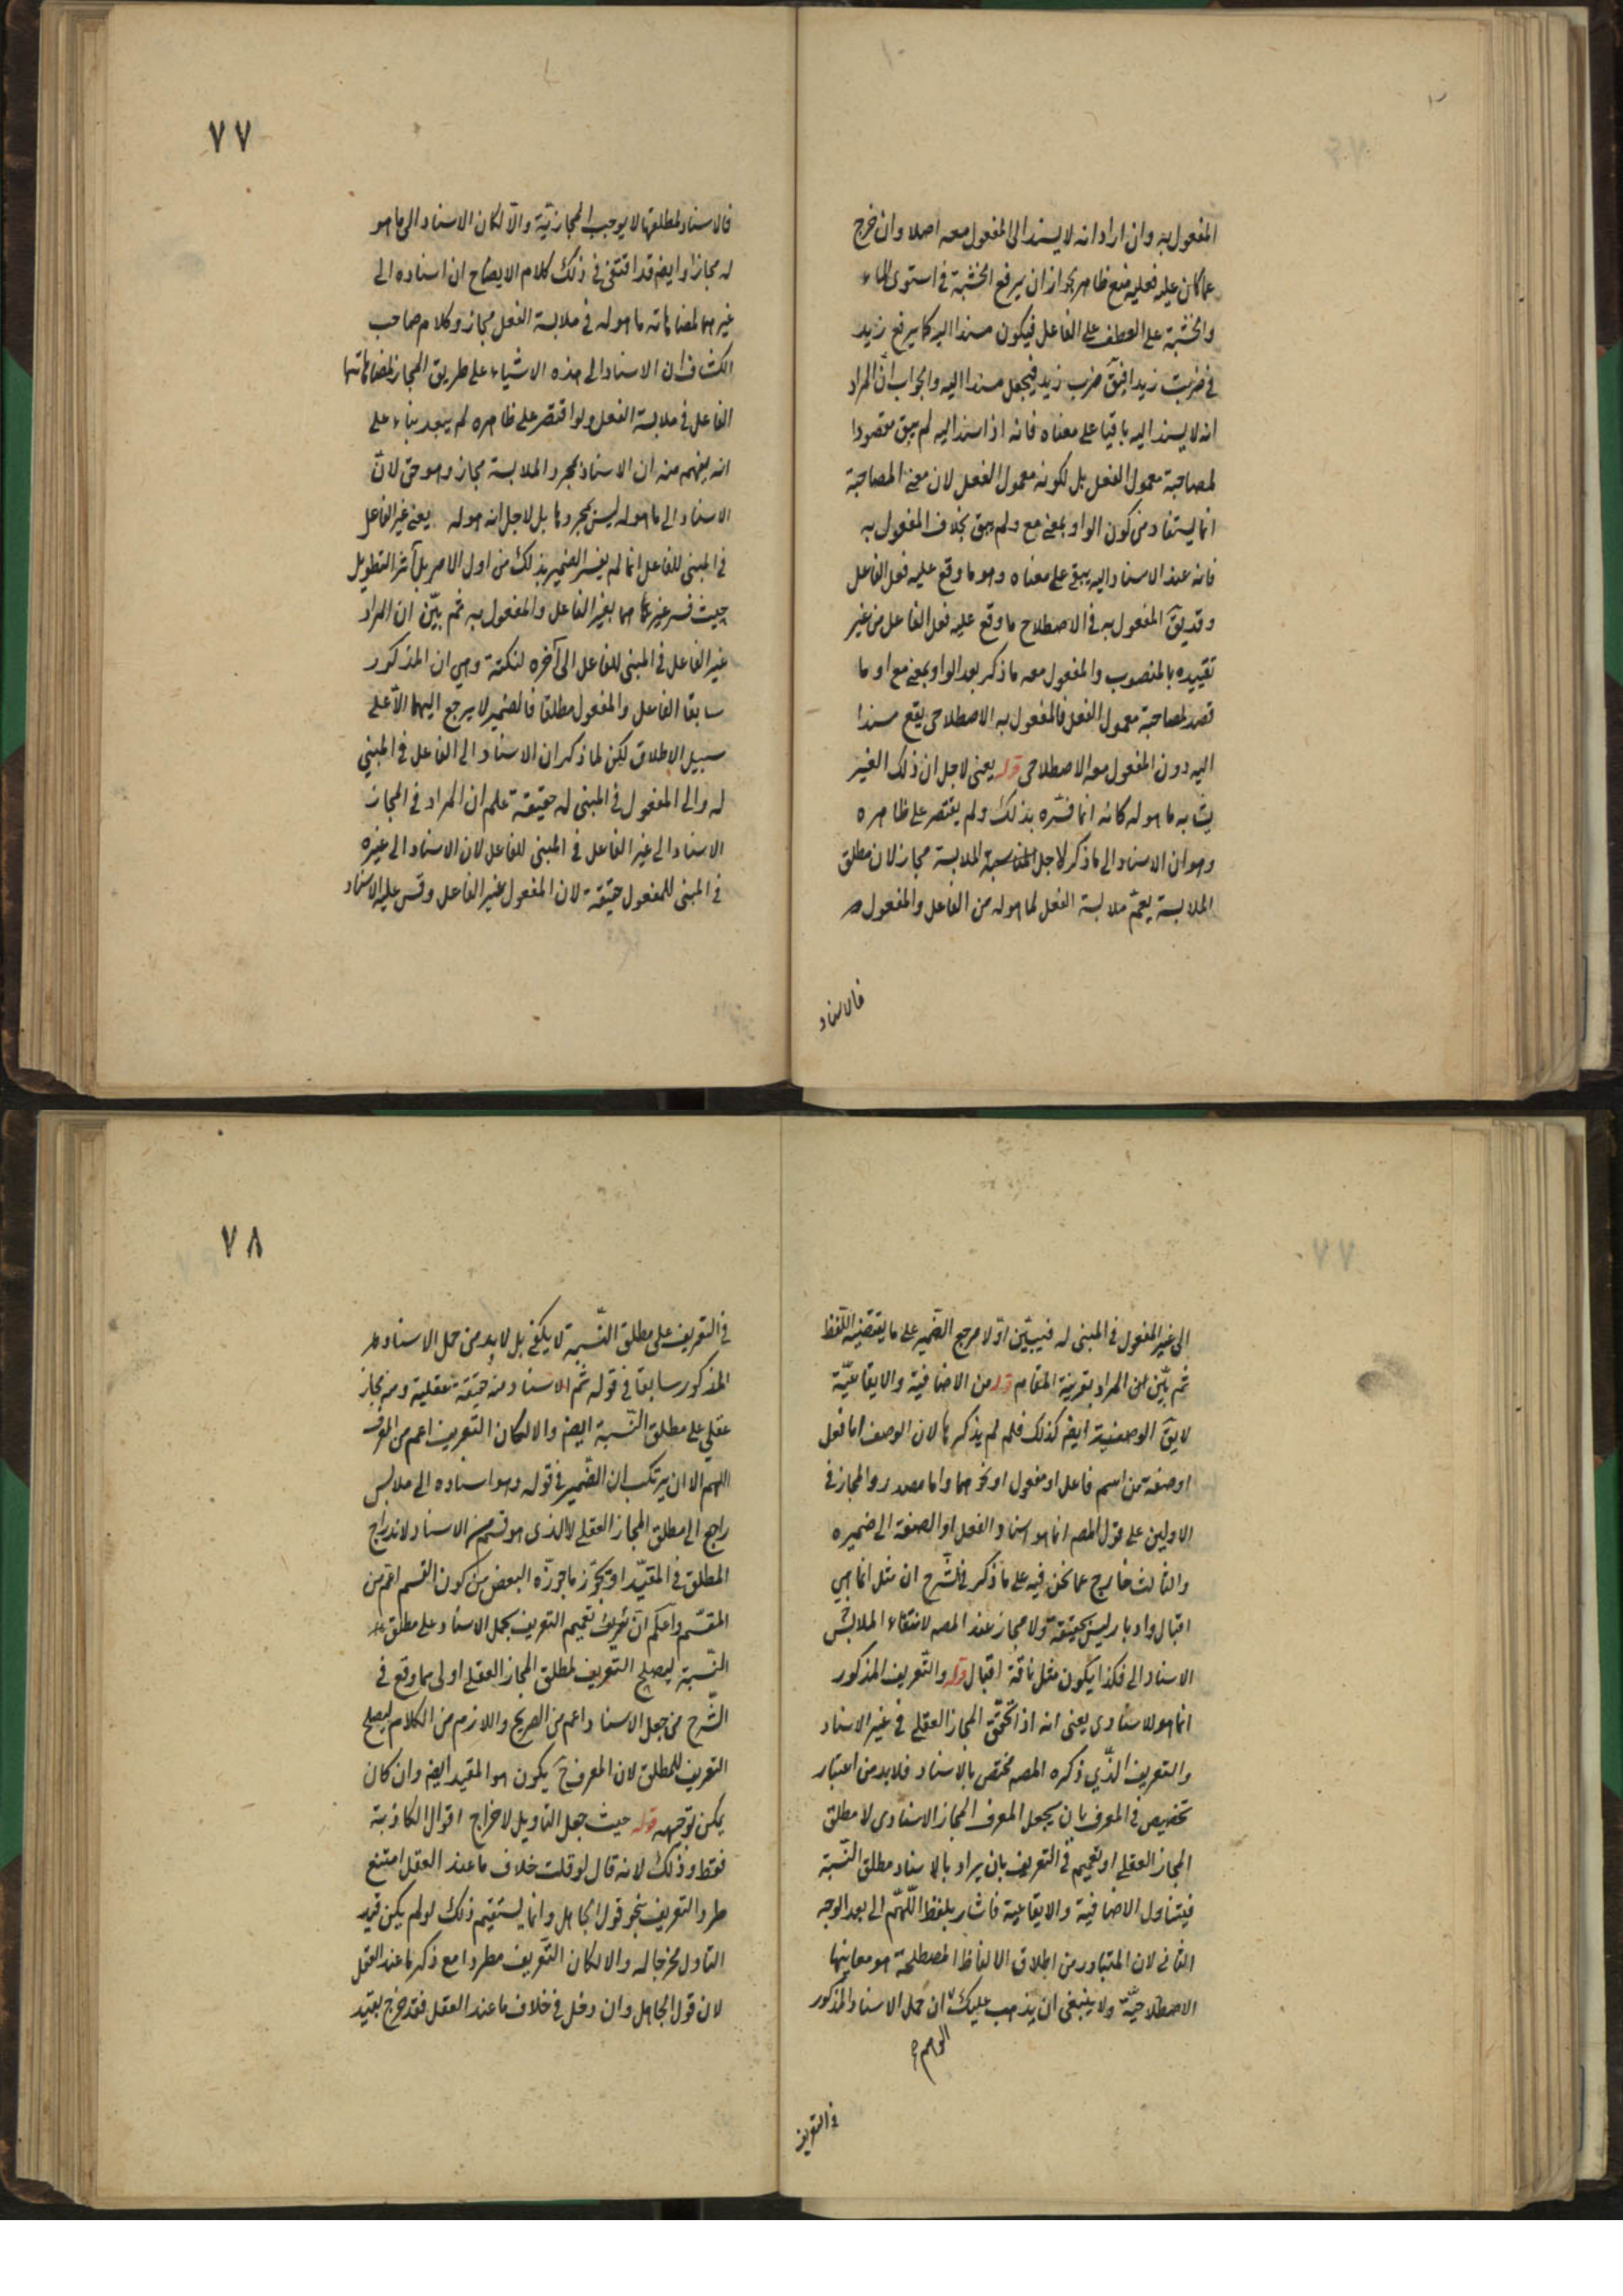 المفعول به وان اراد انه لا يسند الى المفعول معه اصلا وان خرج
عما كان عليه فعليه منع ظاهر لجواز ان يرفع الخشبة فى استوى الماء
والخشبة على العطف على الفاعل فيكون مسندا اليه كما يرفع زيد
فى ضربت زيدا فيق ضرب زيد فيجعل مسندا اليه والجواب ان المراد
انه لا يسند اليه باقيا على معناه فانه اذا اسند اليه لم يبق مقصودا
لمصاحبة معمول الفعل بل لكونه معمول الفعل لان معنى المصاحبة
انما يستفاد من كون الواو بمعنى مع ولم يبق بخلاف المفعول به
فانه عند الاسناد اليه يبقى على معناه وهو ما وقع عليه فعل الفاعل
وقد يق المفعول به فى الاصطلاح ما وقع عليه فعل الفاعل من غير
تقييده بالمنصوب والمفعول معه ما ذكر بعد الواو بمعنى مع او ما
قصد لمصاحبة معمول الفعل فالمفعول به الاصطلاحى يقع مسندا
اليه دون المفعول معه الاصطلاحى قوله يعنى لاجل ان ذلك الغير
يشابه ما هو له كانه انما فسّره بذلك ولم يقتصر على ظاهره
وهو ان الاسناد الى ما ذكر لاجل المناسبة الملابسة مجاز لان مطلق
الملابسة يعمّ ملابسة الفعل لما هو له من الفاعل والمفعول
فالاسناد
٧٧
فالاسناد لمطلقها لا يوجب المجازيّة والّا لكان الاسناد الى ما هو
له مجازا وايضا قد اقتفى فى ذلك كلام الايضاح ان اسناده الى
غيرهما لمضاهاته ما هو له فى ملابسة الفعل مجاز وكلام صاحب
الكشاف ان الاسناد الى هذه الاشياء على طريق المجاز لمضاهاتها
الفاعل فى ملابسة الفعل ولو اقتصر على ظاهره لم يبعد بناء على
انه يفهم منه ان الاسناد لمجرد الملابسة مجاز وهو حق لانّ
الاسناد الى ما هو له ليس لمجردها بل لاجل انه هو له يعنى غير الفاعل
فى المبنى للفاعل انما لم يفسر الضمير بذلك من اول الامر بل آثر التطويل
حيث فسر غيرهما بغير الفاعل والمفعول به ثم بيّن ان المراد
غير الفاعل فى المبنى للفاعل الى آخره لنكتة وهى ان المذكور
سابقا الفاعل والمفعول مطلقا فالضمير لا يرجع اليهما الّا على
سبيل الاطلاق لكن لما ذكر ان الاسناد الى الفاعل فى المبنى
له والى المفعول فى المبنى له حقيقة علم ان المراد فى المجاز
الاسناد الى غير الفاعل فى المبنى للفاعل لان الاسناد الى غيره
فى المبنى للمفعول حقيقة لان المفعول غير الفاعل وقس عليه الاسناد
٧٧
الى غير المفعول فى المبنى له فيبيّن اوّلا مرجع الضمير على ما يقتضيه اللّفظ
ثم بيّن ان المراد بقرينة المقام قوله من الاضافية والايقاعيّة
لا يق الوصفية ايضا كذلك فلم لم يذكرها لان الوصف اما فعل
او صفة من اسم فاعل او مفعول او نحوهما واما مصدر والمجاز فى
الاولين على قول المص انما هو اسناد الفعل او الصفة الى ضميره
والثالث خارج عما نحن فيه على ما ذكر فى الشرح ان مثل انما هى
اقبال وادبار ليس بحقيقة ولا مجاز عند المص لانتفاء الملابس
الاسناد الى فكذا يكون مثل ناقة اقبال قوله والتعريف المذكور
انما هو للاسنادى يعنى انه اذا تحقق المجاز العقلى فى غير الاسناد
والتعريف الّذى ذكره المص مختص بالاسناد فلا بد من اعتبار
تخصيص فى المعرف بان يجعل المعرف المجاز الاسنادى لا مطلق
المجاز العقلى او تعميم فى التعريف بان يراد بالاسناد مطلق النّسبة
فيتناول الاضافية والايقاعية فاشار بلفظ اللّهمّ الى بعد الوجه
الثانى لان المتبادر من اطلاق الالفاظ المصطلحة هو معانيها
الاصطلاحيّة ولا ينبغى ان يذهب عليك ان حمل الاسناد المذكور
فى التعريف
٧٨
فى التعريف على مطلق النّسبة لا يكفى بل لا بد من حمل الاسناد
المذكور سابقا فى قوله ثم الاسناد منه حقيقة عقلية ومنه مجاز
عقلى على مطلق النّسبة ايضا والا لكان التعريف اعم من المعرف
اللهم الا ان يرتكب ان الضّمير فى قوله وهو اسناده الى ملابس
راجع الى مطلق المجاز العقلى لا الذى هو قسم من الاسناد لاندراج
المطلق فى المقيّد او يجوّز ما جوزه البعض من كون القسم اعم من
المقسّم واعلم ان تعميم التعريف بحمل الاسناد على مطلق
النّسبة ليصلح التعريف لمطلق المجاز العقلى اولى مما وقع فى
الشّرح من جعل الاسناد اعم من الصريح واللازم من الكلام ليصلح
التعريف للمطلق لان المعرف ح يكون هو المقيد ايضا وان كان
يمكن توجيهه قوله حيث جعل التاويل لاخراج اقوال الكاذبة
فقط وذلك لانه قال لو قلت خلاف ما عند العقل امتنع
طرد التعريف بنحو قول الجاهل وانما يستقيم ذلك لو لم يكن قيد
التاول مخرجا له والا لكان التّعريف مطردا مع ذكر ما عند العقل
لان قول الجاهل وان دخل فى خلاف ما عند العقل فقد خرج بقيد